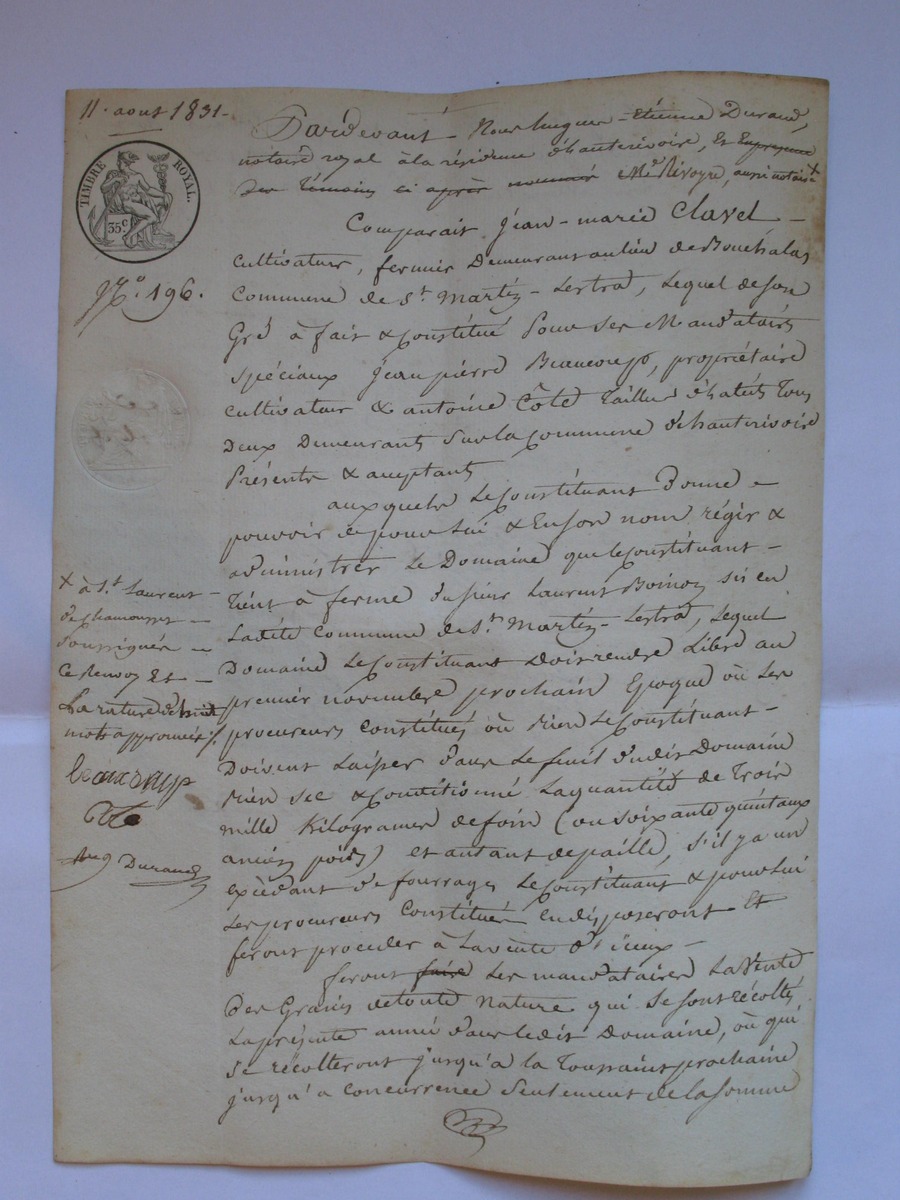 11. aout 1831.
TIMBRE ROYAL.
35 c
N.o 196.
Pardevant Nous hugues Etienne Durand,
notaire royal à la résidence d'hauterivoire, Et En présence
des témoins ci après nommés Me. Rivoyre, aussi notaire x
Comparait Jean-marie Clavel -
Cultivateur, fermier Demeurant au lieu de Bouchalas
Commune de St. Martin-Lestra, Lequel de son
Gré à fait & Constitué Pour ses Mandataires
spéciaux Jean pierre Beaucoup, propriétaire
Cultivateur & antoine Côte Tailleur d'habits Tous
Deux Demeurants sur la Commune d'hauterivoire
Présents & acceptants
auxquels le Constituant Donne -
pouvoir de pour Lui & En son nom régir &
administrer Le Domaine que le Constituant -
Tient à ferme du sieur Laurent sis en
Ladite Commune de St. Martin-Lestra, Lequel
Domaine Le Constituant doit rendre Libre au
premier novembre prochain Epoque où Les
procureurs Constitués où bien le Constituant -
Doivent Laisser dans Le feuil dudit Domaine
Bien sec & Conditionné La quantité de Trois
mille Kilogrames de foin (ou soixante quintaux
ancien poids) et autant de paille, s'il y a un
excédant de fourrages Le Constituant & pour Lui
Les procureurs Constitués en disposeront Et
feront procéder à La vente d'iceux -
feront faire Les mandataires La Vente
Des Grains de toute Nature qui se sont récoltés
La présente année dans ledit Domaine, où qui
se récolteront jusqu'à la Toussaint prochaine
jusqu'à concurrence seulement de la somme
x à St. Laurent -
de Chamousset -
soussignés -
Ce Renvoy Et -
La rature de huit
mots approuvés ./.
beaucoup
Cote
Durand